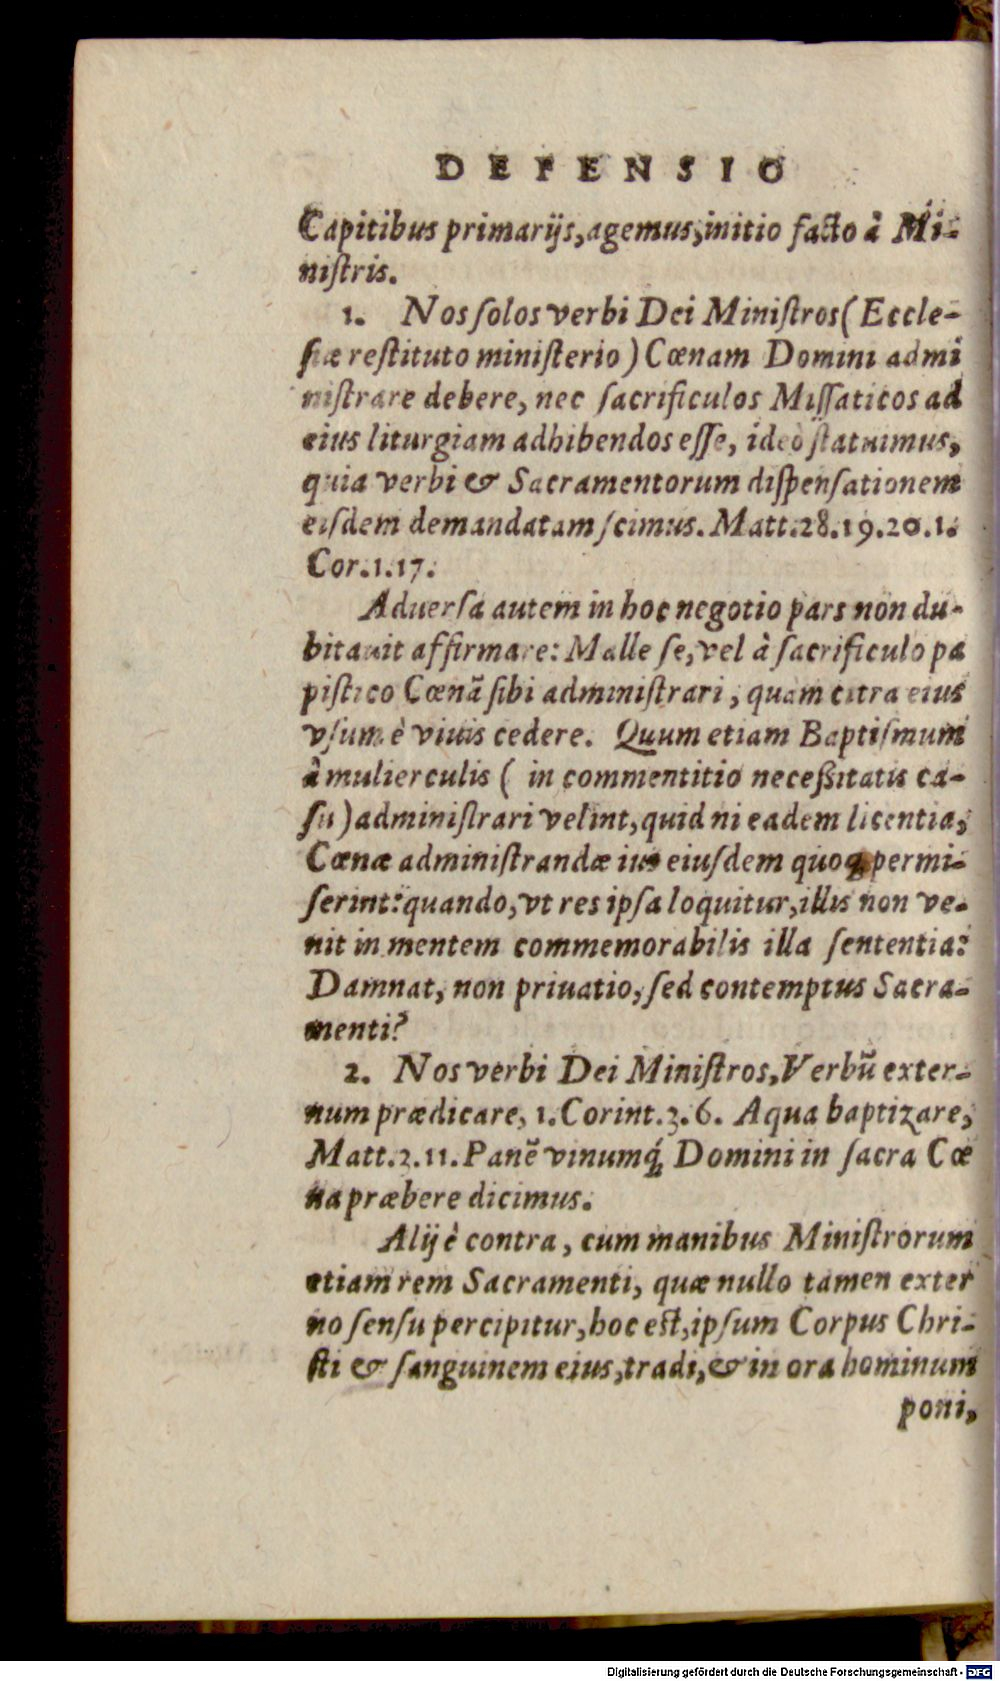 DEFENSIO
Capitibus primarijs, agemus, initio facto â Mi-
niſtris.
1. Nos ſolos verbi Dei Miniſtros (Eccle-
ſiæ reſtituto miniſterio) Cœnam Domini admi
niſtrare debere, nec ſacrificulos Miſſaticos ad
eius liturgiam adhibendos eſſe, ideò ſtatuimus,
quia verbi & Sacramentorum diſpenſationem
eiſdem demandatam ſcimus. Matt. 28. 19. 20. 1.
Cor. 1. 17.
Aduerſa autem in hoc negotio pars non du-
bitauit affirmare: Malle ſe, vel à ſacrificulo pa
piſtico Cœnã ſibi adminiſtrari, quam citra eius
vſum è viuis cedere. Quum etiam Baptiſmum
â mulierculis ( in commentitio neceßitatis ca-
ſu) adminiſtrari velint, quid ni eadem licentia,
Cœnæ adminiſtrandæ ius eiuſdem quoq; permi-
ſerint: quando, vt res ipſa loquitur, illis non ve-
nit in mentem commemorabilis illa ſententia:
Damnat, non priuatio, ſed contemptus Sacra-
menti?
2. Nos verbi Dei Miniſtros, Verbũ exter-
num prædicare, 1. Corint. 3. 6. Aqua baptizare,
Matt. 3. 11. Panẽ vinumq́; Domini in ſacra Cœ
na præbere dicimus.
Alij è contra, cum manibus Miniſtrorum
etiam rem Sacramenti, quæ nullo tamen exter
no ſenſu percipitur, hoc eſt, ipſum Corpus Chri-
ſti & ſanguinem eius, tradi, & in ora hominum
poni,
Digitalisierung gefördert durch die Deutsche Forschungsgemeinschaft - DFG